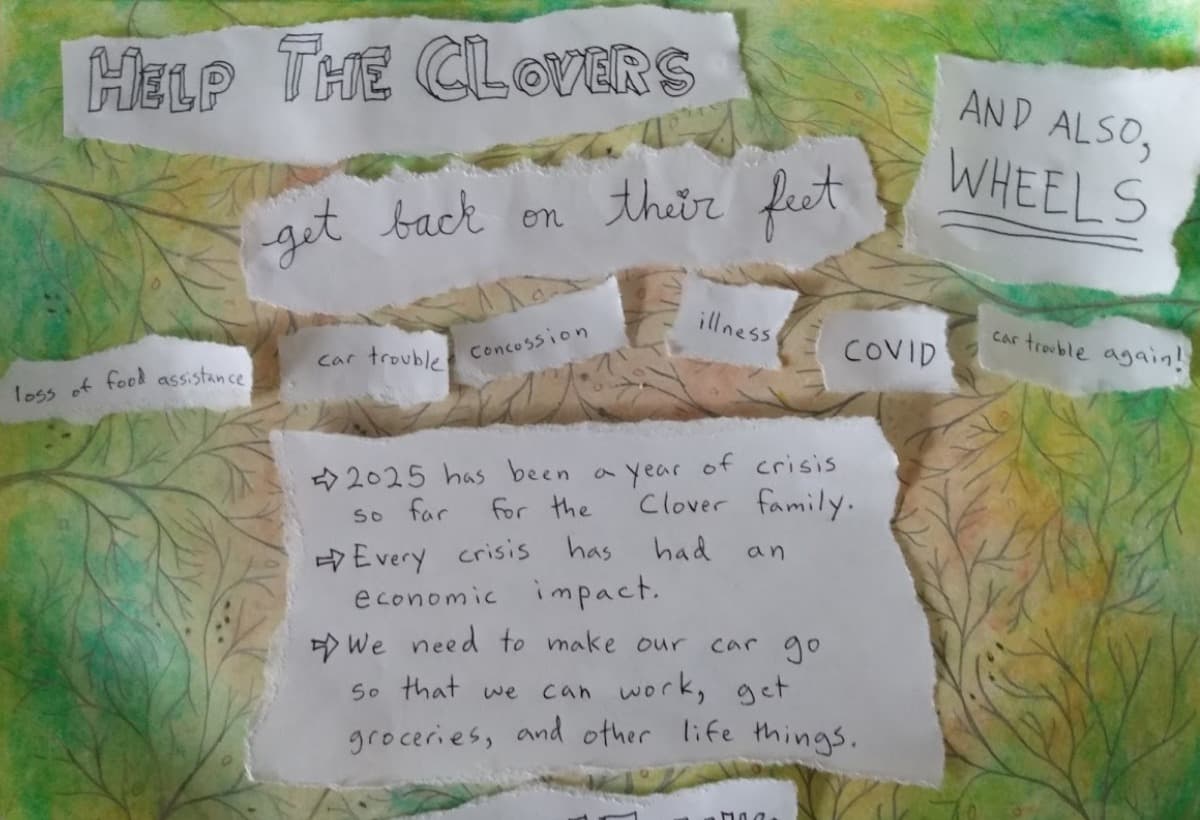 HELP THE CLOVERS
AND ALSO,
WHEELS
get back on their feet
loss of food assistance
car trouble
concussion
illness
COVID
car trouble again!
⇨ 2025 has been a year of crisis
so far for the Clover family.
⇨ Every crisis has had an
economic impact.
⇨ We need to make our car go
so that we can work, get
groceries, and other life things.